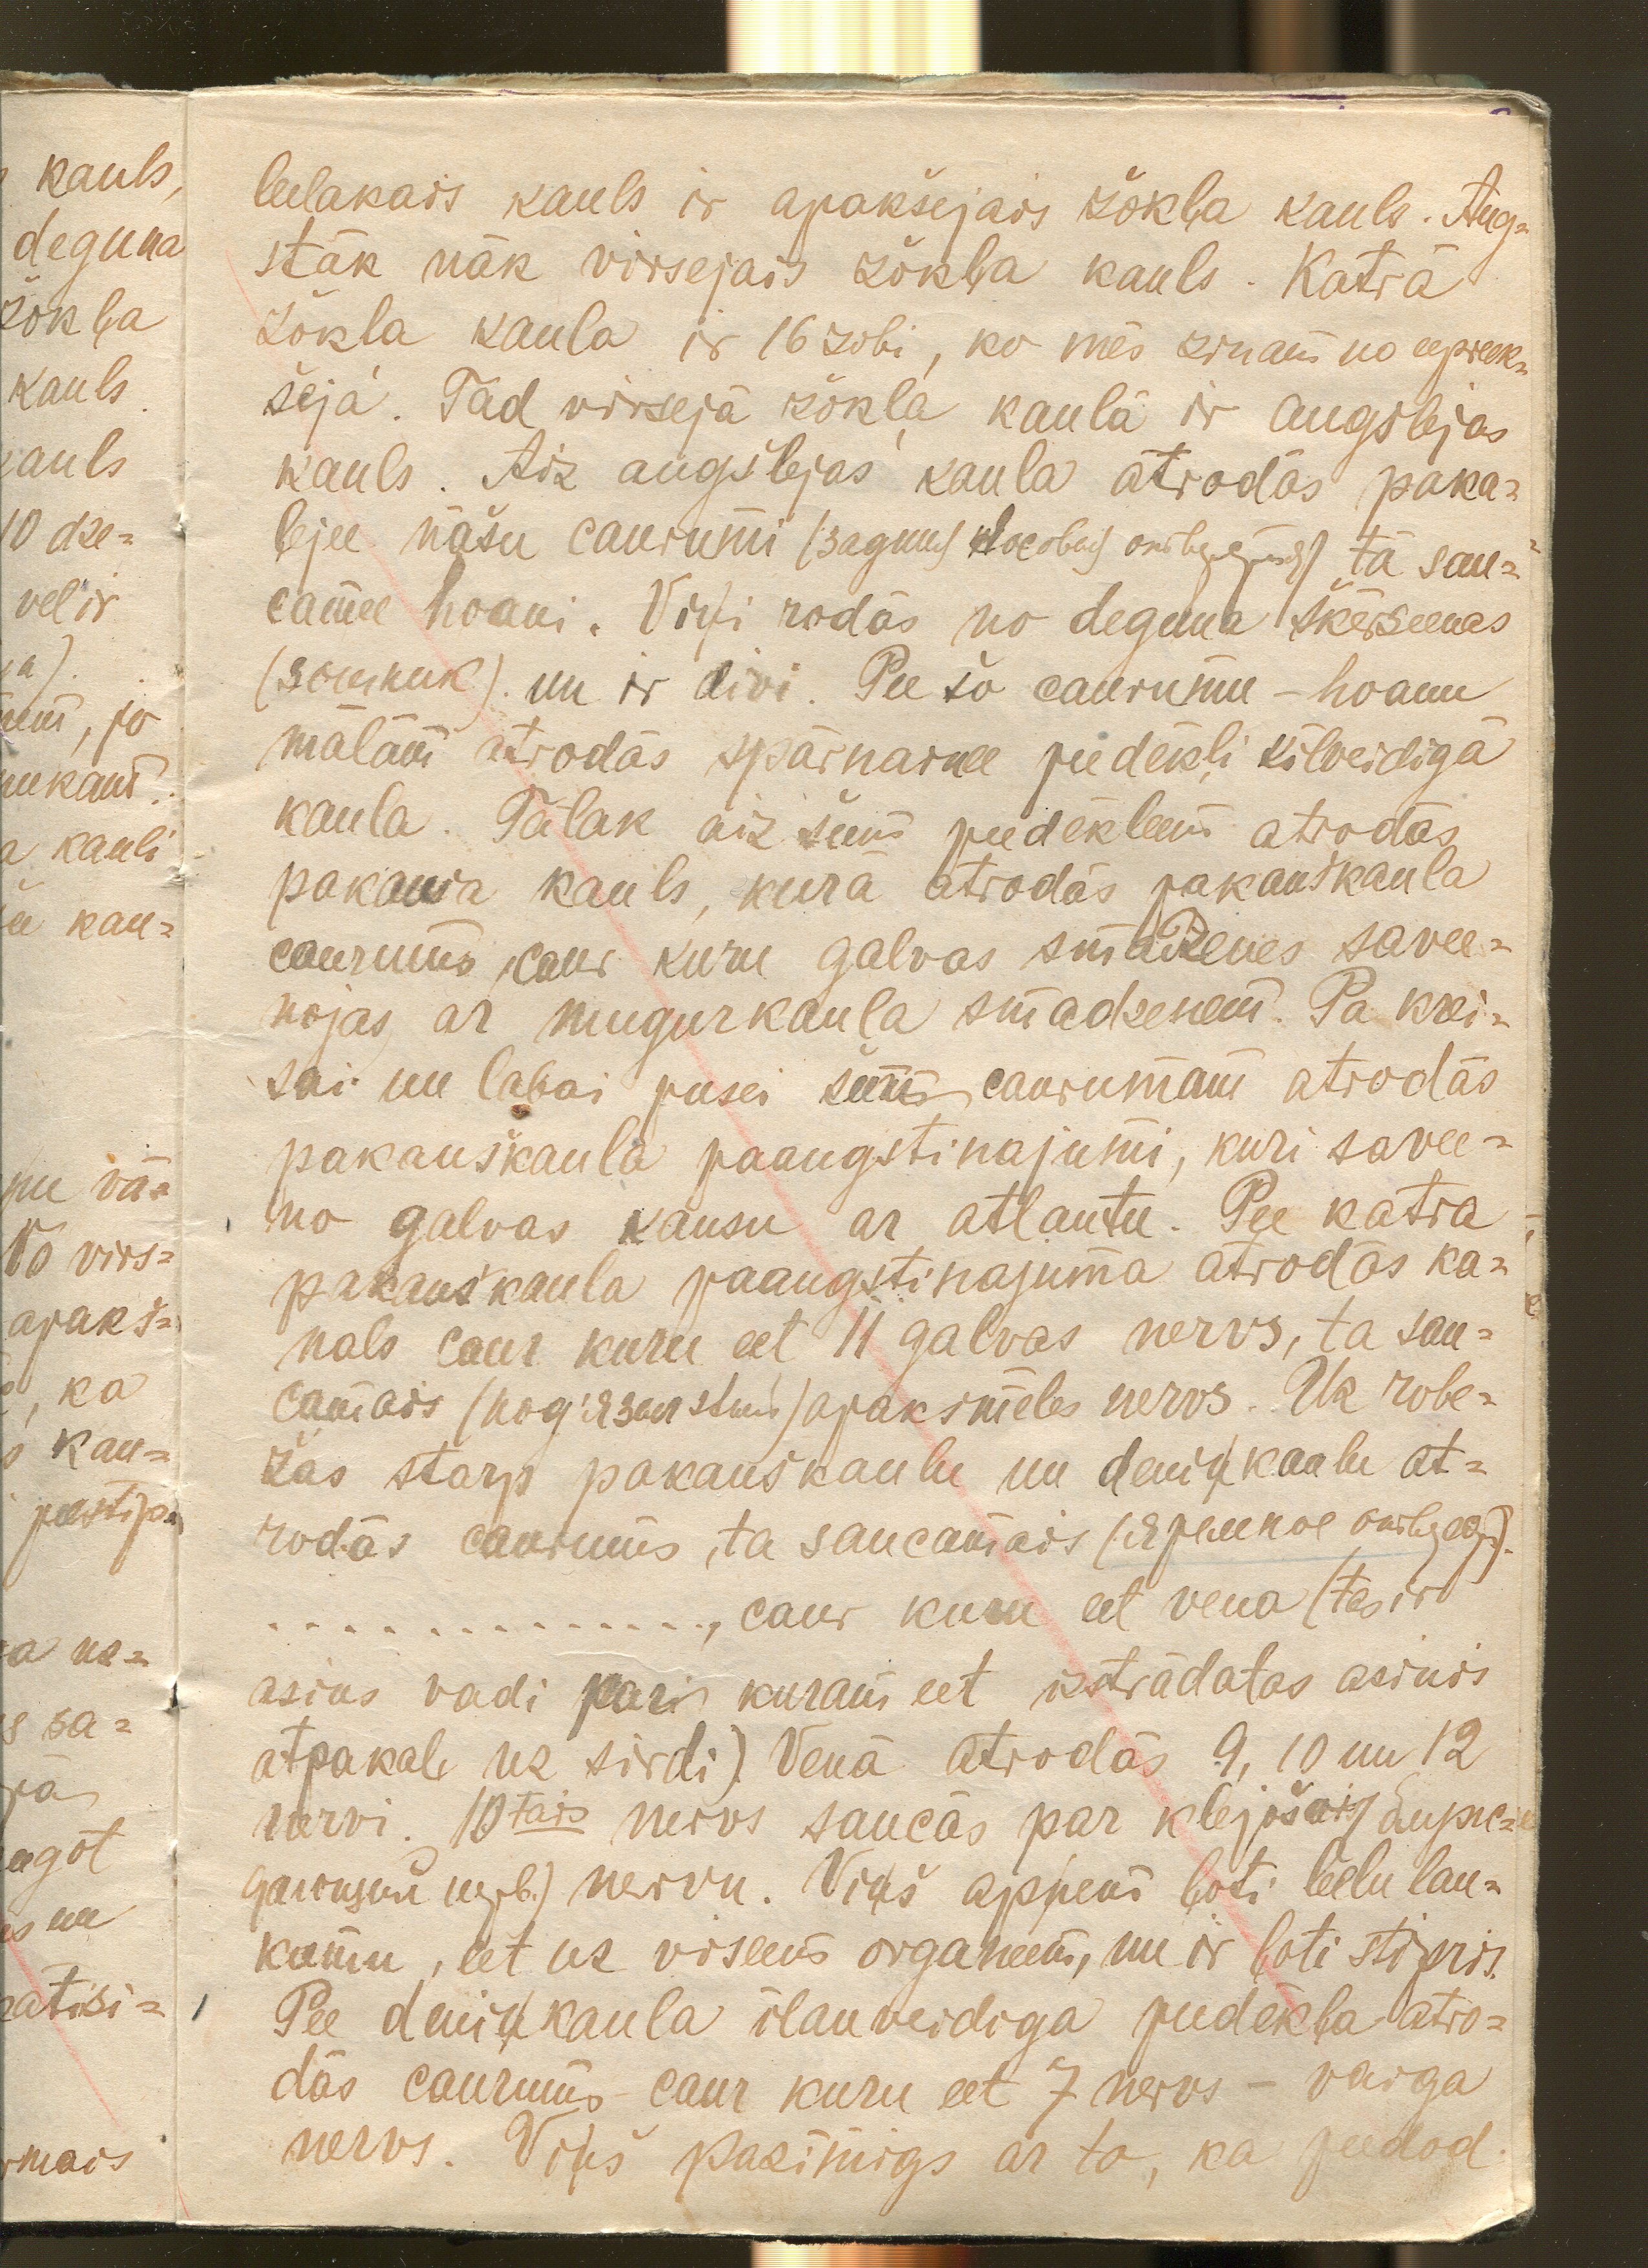 kauls,
deguna
žokļa
kauls
kauls
10 dze=
vel ir
jo
kauli
kau=
vā=
No virs=
apakš=
, ka
kau=
sa=
un
leelakais kauls ir apakšejais žokļa kauls. Aug=
stāk nāk virsejais žokļa kauls. Katrā
žokļa kaula ir 16 zobi, ko mēs zinam no eepreek=
šejā. Tad virsejā žokļa kaulā ir augslejas
kauls. Aiz augšlejas kaula atrodās paka=
ļejee nāsu caurumi (задния носовыя ) tā sau=
camee hoani. Viņi rodās no deguna šķērseenas
(зошник). un ir divi. Pee šo caurumu – hoanu
malām atrodās spārnainee peedēkļi ķīlveidigā
kaula. Tālak aiz šeem peedēkleem atrodās
pakauša kauls, kurā atrodās pakauškaula
caurums, caur kuru galvas smadzenes savee=
nojas ar mugurkaula smadzenem. Pa krei=
sai un labai pusei šeem caurumam atrodās
pakauškaula paaugstinajumi, kuri savee=
no galvas kausu ar atlantu. Pee katra
pakauškaula paaugstinajuma atrodās ka=
nals caur kuru eet 11 galvas nervs, ta sau=
camais (подъязычный) apaksmēles nervs. Uz robe=
žas starp pakauškaulu un deniņkaulu at=
rodās caurums, ta saucamais (яремное ).
. . . . . . . . . . . . . ., caur kuru eet vena (tas ir
asins vadi pa kuram eet izstrādatas asinis
atpakaļ uz sirdi) Venā atrodās 9, 10 un 12
nervi. 10tais nervs saucās par klejošais
нерв.) nervu. Viņš apņem ļoti leelu lau=
kumu, eet uz viseem organeem, un ir ļoti stipris.
Pee deniņkaula īlanveidiga peedēkļa atro=
dās caurums caur kuru eet 7 nervs – vaiga
nervs. Viņš pazimigs ar to, ka peedod